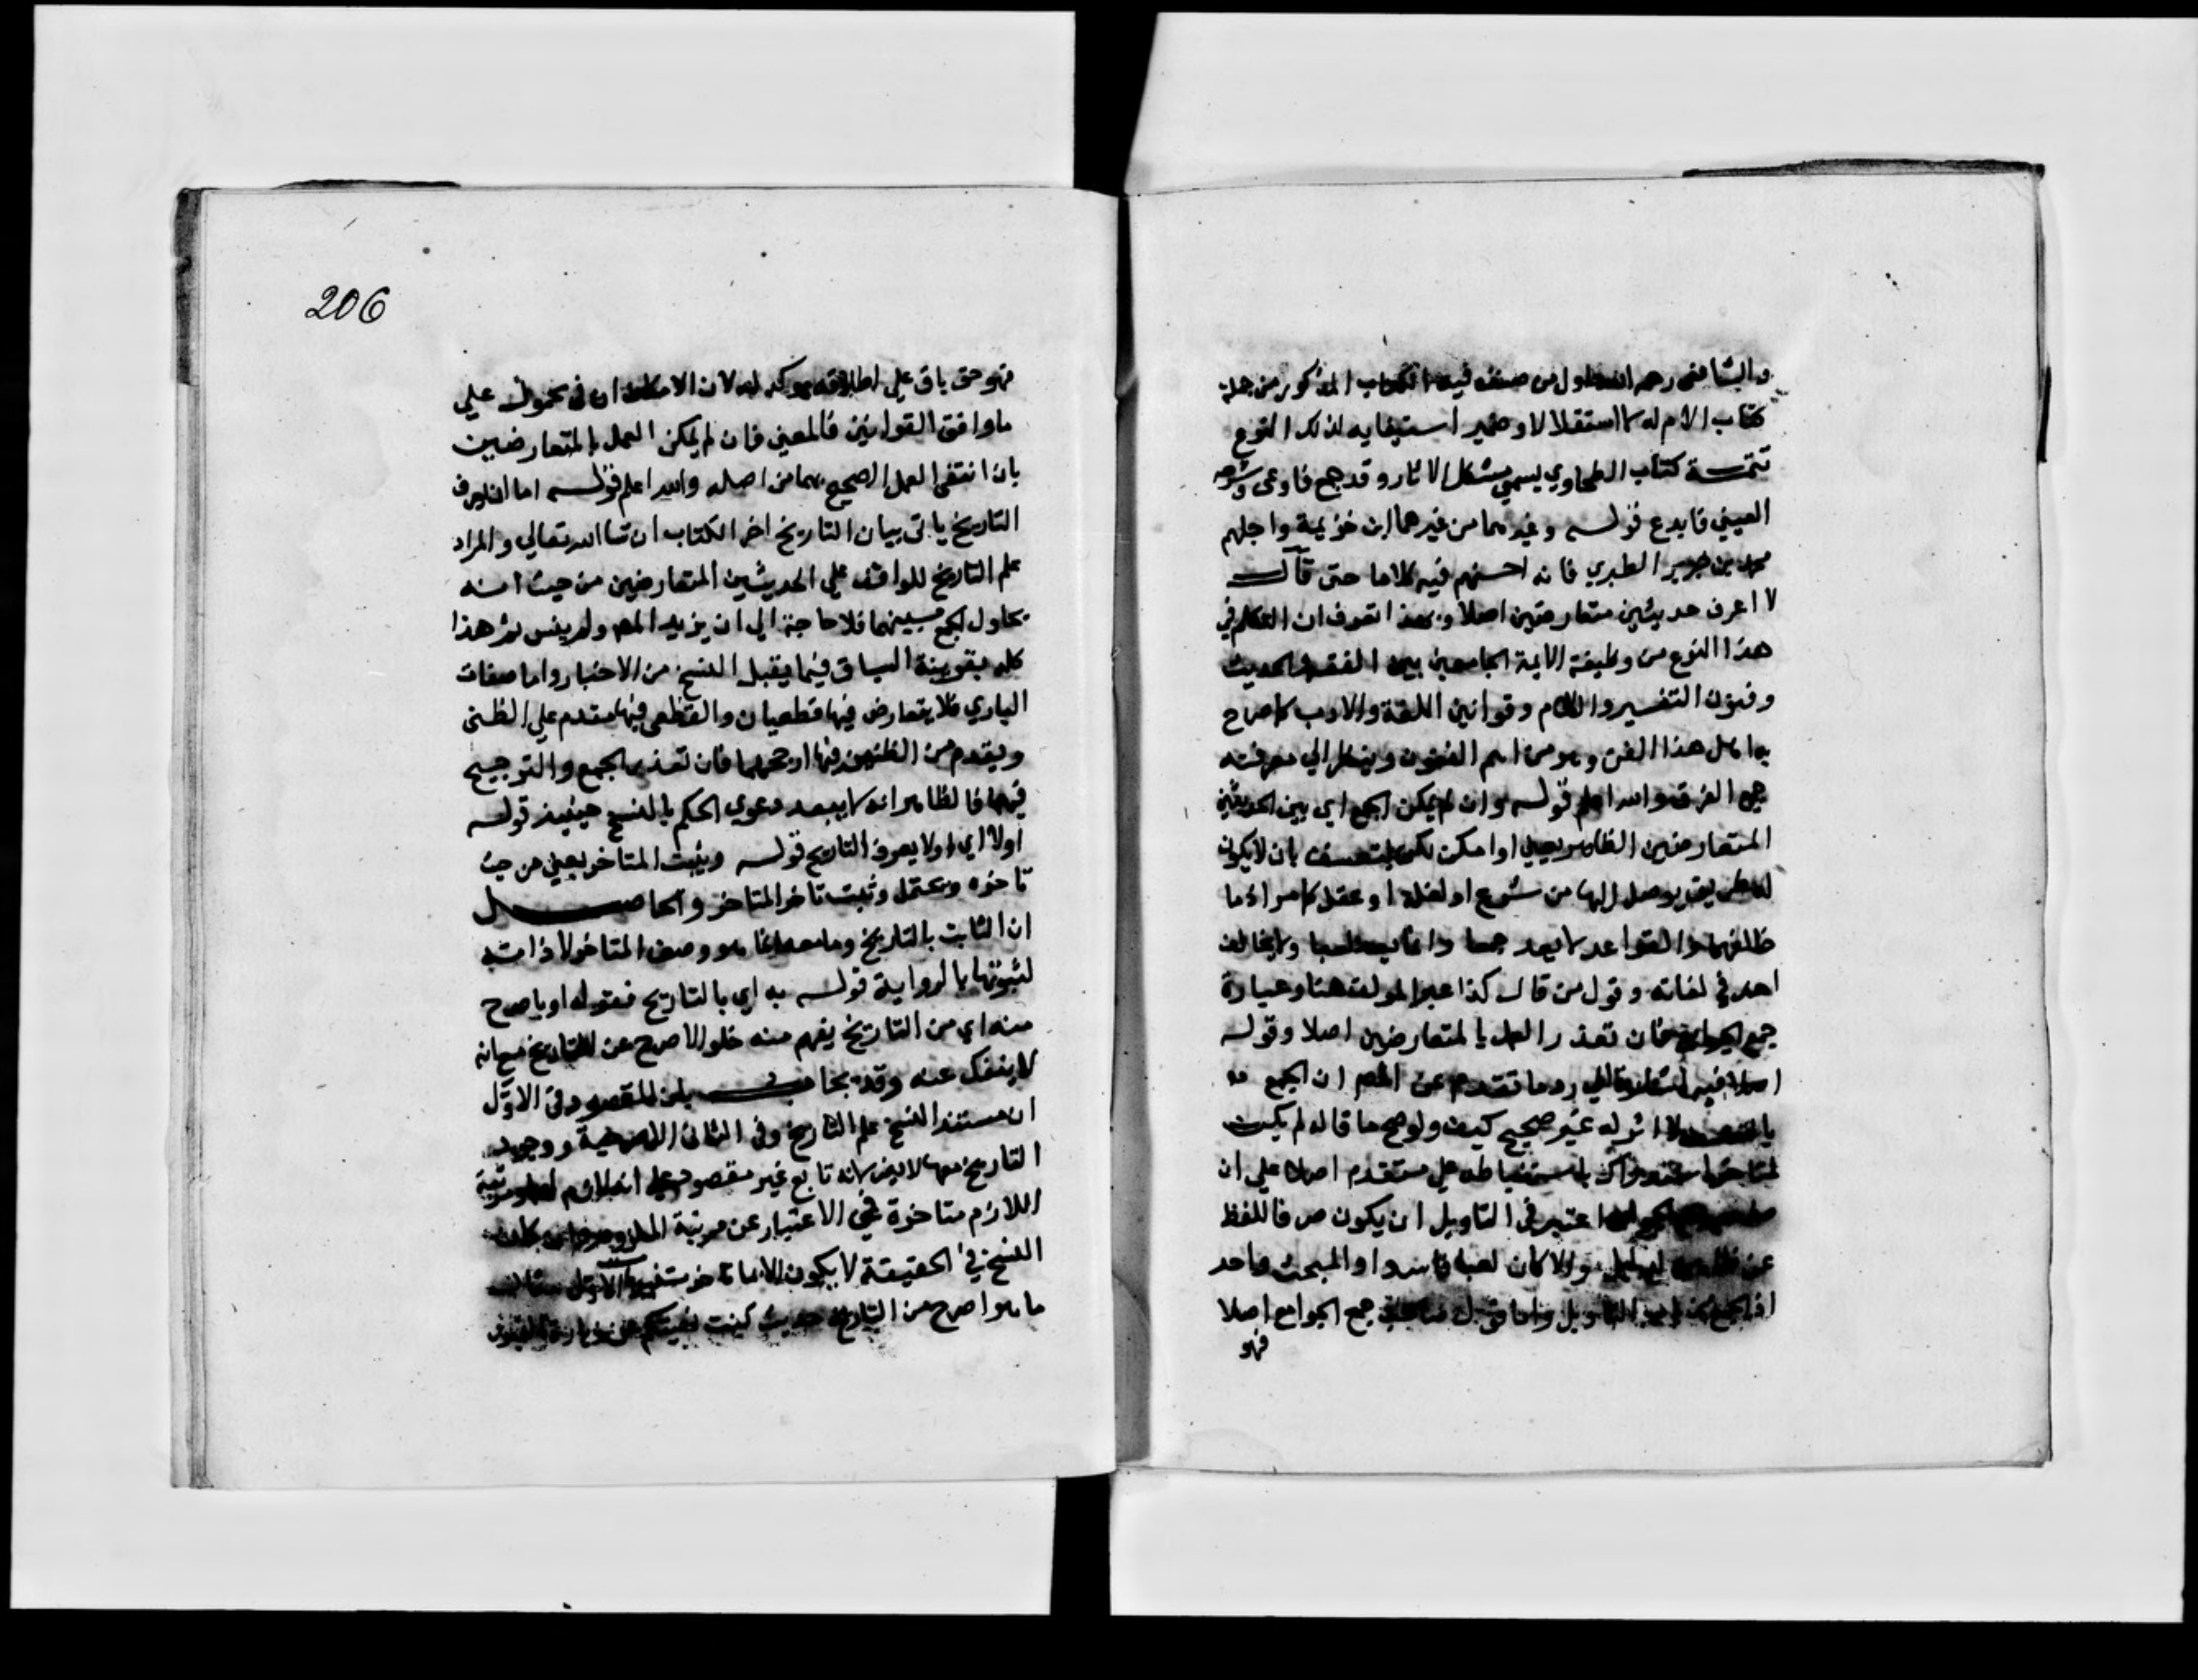 والشافعي رحمه الله اول من صنف فيه الكتاب المذكور من جملة
كتاب الام له لا استقلالا وضمير استيفايه لذلك النوع
تتمــة كتاب الطحاوي يسمي مشكل الاثار وقد جمع فاوعى وشرحه
العيني فابدع قولـه وغيرهما من غيرهما ابن خزيمة واجلهم
محمد بن جرير الطبري فانه احسنهم فيه كلاما حتى قال
لا اعرف حديثين متعارضين اصلا وبهذا تعرف ان التكلم في
هذا النوع من وظيفة الايمة الجامعين بين الفقه والحديث
وفنون التفسير والكلام وقوانين اللغة والادب كما صرح
به اهل هذا الفن وهو من اهم الفنون ويضطر الي معرفته
جميع الفرق والله اعلم قولـه وان لم يمكن الجمع اي بين الحديثين
المتعارضين الظاهر يعني او امكن لكن بتعسف بان لا يكون
له طريق يوصل اليها من شرع او لغة او عقل كما مر اذ ما
خالفهما والقواعد لا يعد جمعا وانما يعد لعبا ولا يخالف
احد في لغاته وقول من قال كذا عبر المولف هنا وعبارة
جمع الجوامع فان تعذر العمل بالمتعارضين اصلا وقولـه
اصلا فيه اشارة الي رد ما تقدم عن المص ان الجمع
لا اثر له غير صحيح كيف ولو صح ما قاله لم يكن
لمتاخر باستنباطه على متقدم اصلا علي ان
اعتبر في التاويل ان يكون صرفا للفظ
عن لدليل والا كان لعبا فاسدا والمبحث واحد
التاويل واما قول صاحب جمع الجوامع اصلا
فهو
206
فهو حق باق علي اطلاقه موكد له لان الامكان محمول علي
ما وافق القوانين فالمعني فان لم يمكن العمل بالمتعارضين
بان انتفى العمل الصحيح بهما من اصله والله اعلم قولـه اما ان يعرف
التاريخ ياتي بيان التاريخ اخر الكتاب ان شا الله تعالي والمراد
علم التاريخ للواقف علي الحديثين المتعارضين من حيث انه
يحاول الجمع بينهما فلا حاجة الي ان يزيد المص ولم ينس ثم هذا
كله بقرينة السياق فيما يقبل النسخ من الاخبار واما صفات
الباري فلا يتعارض فيها قطعيان والقطعي فيها مقدم علي الظني
ويقدم من الظنيين فيها ارجحهما فان تعذر الجمع والترجيح
فيهما فالظاهر انه لا يبعد دعوي الحكم بالنسخ حينيذ قولـه
اولا اي اولا يعرف التاريخ قولـه ويثبت المتاخر يعني من حيث
تاخره ويحتمل وثبت تاخر المتاخر والحاصـــل
ان الثابت بالتاريخ وما معه انما هو وصف المتاخر لا ذاته
لثبوتها بالرواية قولـه به اي بالتاريخ فقوله او باصرح
منه اي من التاريخ يفهم منه خلو الاصرح عن التاريخ مع انه
لا ينفك عنه وقد يجاب بان المقصود في الاول
ان مستند النسخ علم التاريخ وفي الثاني الاصرحية ووجود
التاريخ معها لا يضر لانه تابع غير مقصود مرتبة
اللازم متاخرة في الاعتبار عن مرتبة الملزوم
النسخ في الحقيقة لا يكون الا بما تاخر
ما هو اصرح من التاريخ حديث كنت نهيتكم عن زيارة القبور